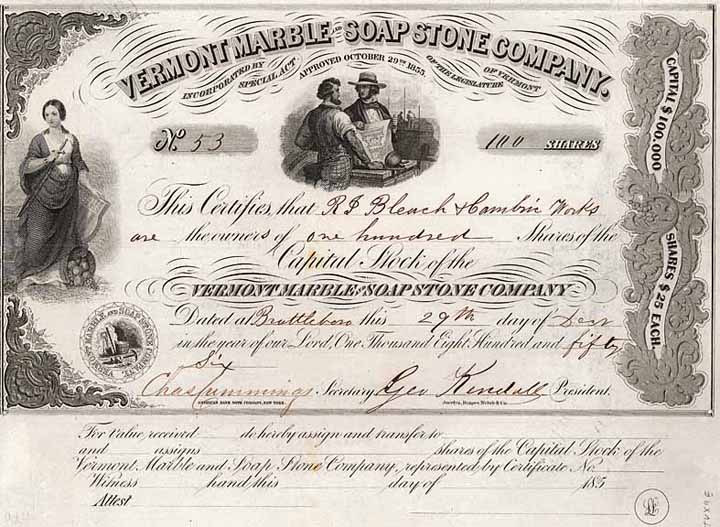 VERMONT MARBLE AND SOAP STONE COMPANY.
INCORPORATED BY SPECIAL ACT APPROVED OCTOBER 29TH 1855. OF THE LEGISLATURE OF VERMONT
No. 53
100 SHARES
This Certifies, that R I Bleach & Cambric Works
are the owners of one hundred Shares of the
Capital Stock of the
VERMONT MARBLE AND SOAP STONE COMPANY
Dated at Brattleboro this 29th day of Decr
in the year of our Lord, One Thousand Eight Hundred and fifty
Six
Chas Cummings Secretary. Geo Kendall President.
AMERICAN BANK NOTE COMPANY, NEW YORK. Jocelyn, Draper, Welsh & Co.
CAPITAL $100,000
SHARES $25 EACH.
VERMONT MARBLE AND SOAP STONE COMPY.
For value received do hereby assign and transfer to
and assigns shares of the Capital Stock of the
Vermont Marble and Soap Stone Company, represented by Certificate No.
Witness hand this day of 185
Attest